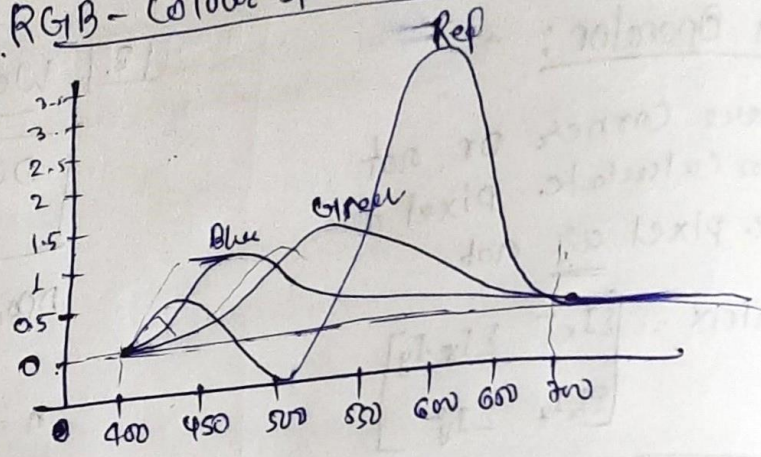 RGB- Colour
Red
3.5
3
2.5
2
1.5
1
0.5
0
Blue
Green
0 400 450 500 550 600 600 700